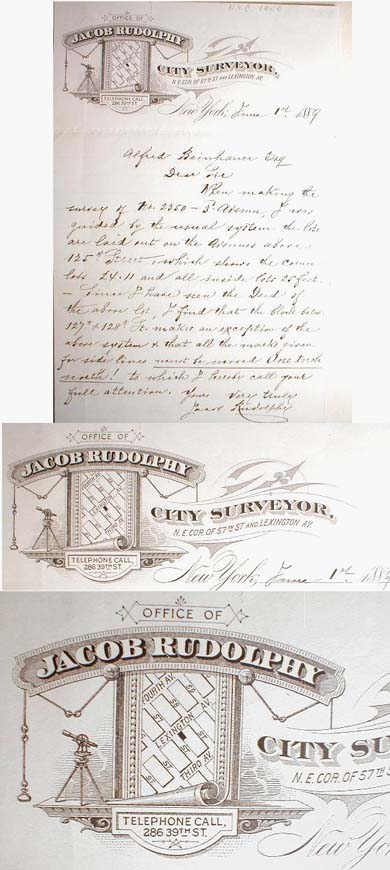 OFFICE OF
JACOB RUDOLPHY
CITY SURVEYOR,
N.E. COR. OF 57TH ST AND LEXINGTON AV.
TELEPHONE CALL,
286 39TH ST.
New York, June 1st 1889
Alfred Beinhauer Esq
Dear Sir
When making the
survey of No. 2350 – 3d Avenue, I was
guided by the usual system the lots
are laid out on the Avenues above
125th Street, which shows the corner
lots 24.11 and all inside lots 25 feet.
– Since I have seen the Deed of
the above lot, I find that the block betw.
127th & 128th St. makes an exception of the
above system & that all the marks given
for side lines must be moved One inch
north! to which I hereby call your
full attention. Yours Very truly
Jacob Rudolphy
OFFICE OF
JACOB RUDOLPHY
CITY SURVEYOR,
N.E. COR. OF 57TH ST AND LEXINGTON AV.
TELEPHONE CALL,
286 39TH ST.
New York, June 1st 188
OFFICE OF
JACOB RUDOLPHY
FOURTH AV.
LEXINGTON AV.
THIRD AV.
CITY SU
N.E. COR. OF 57TH S
TELEPHONE CALL,
286 39TH ST.
New Yo